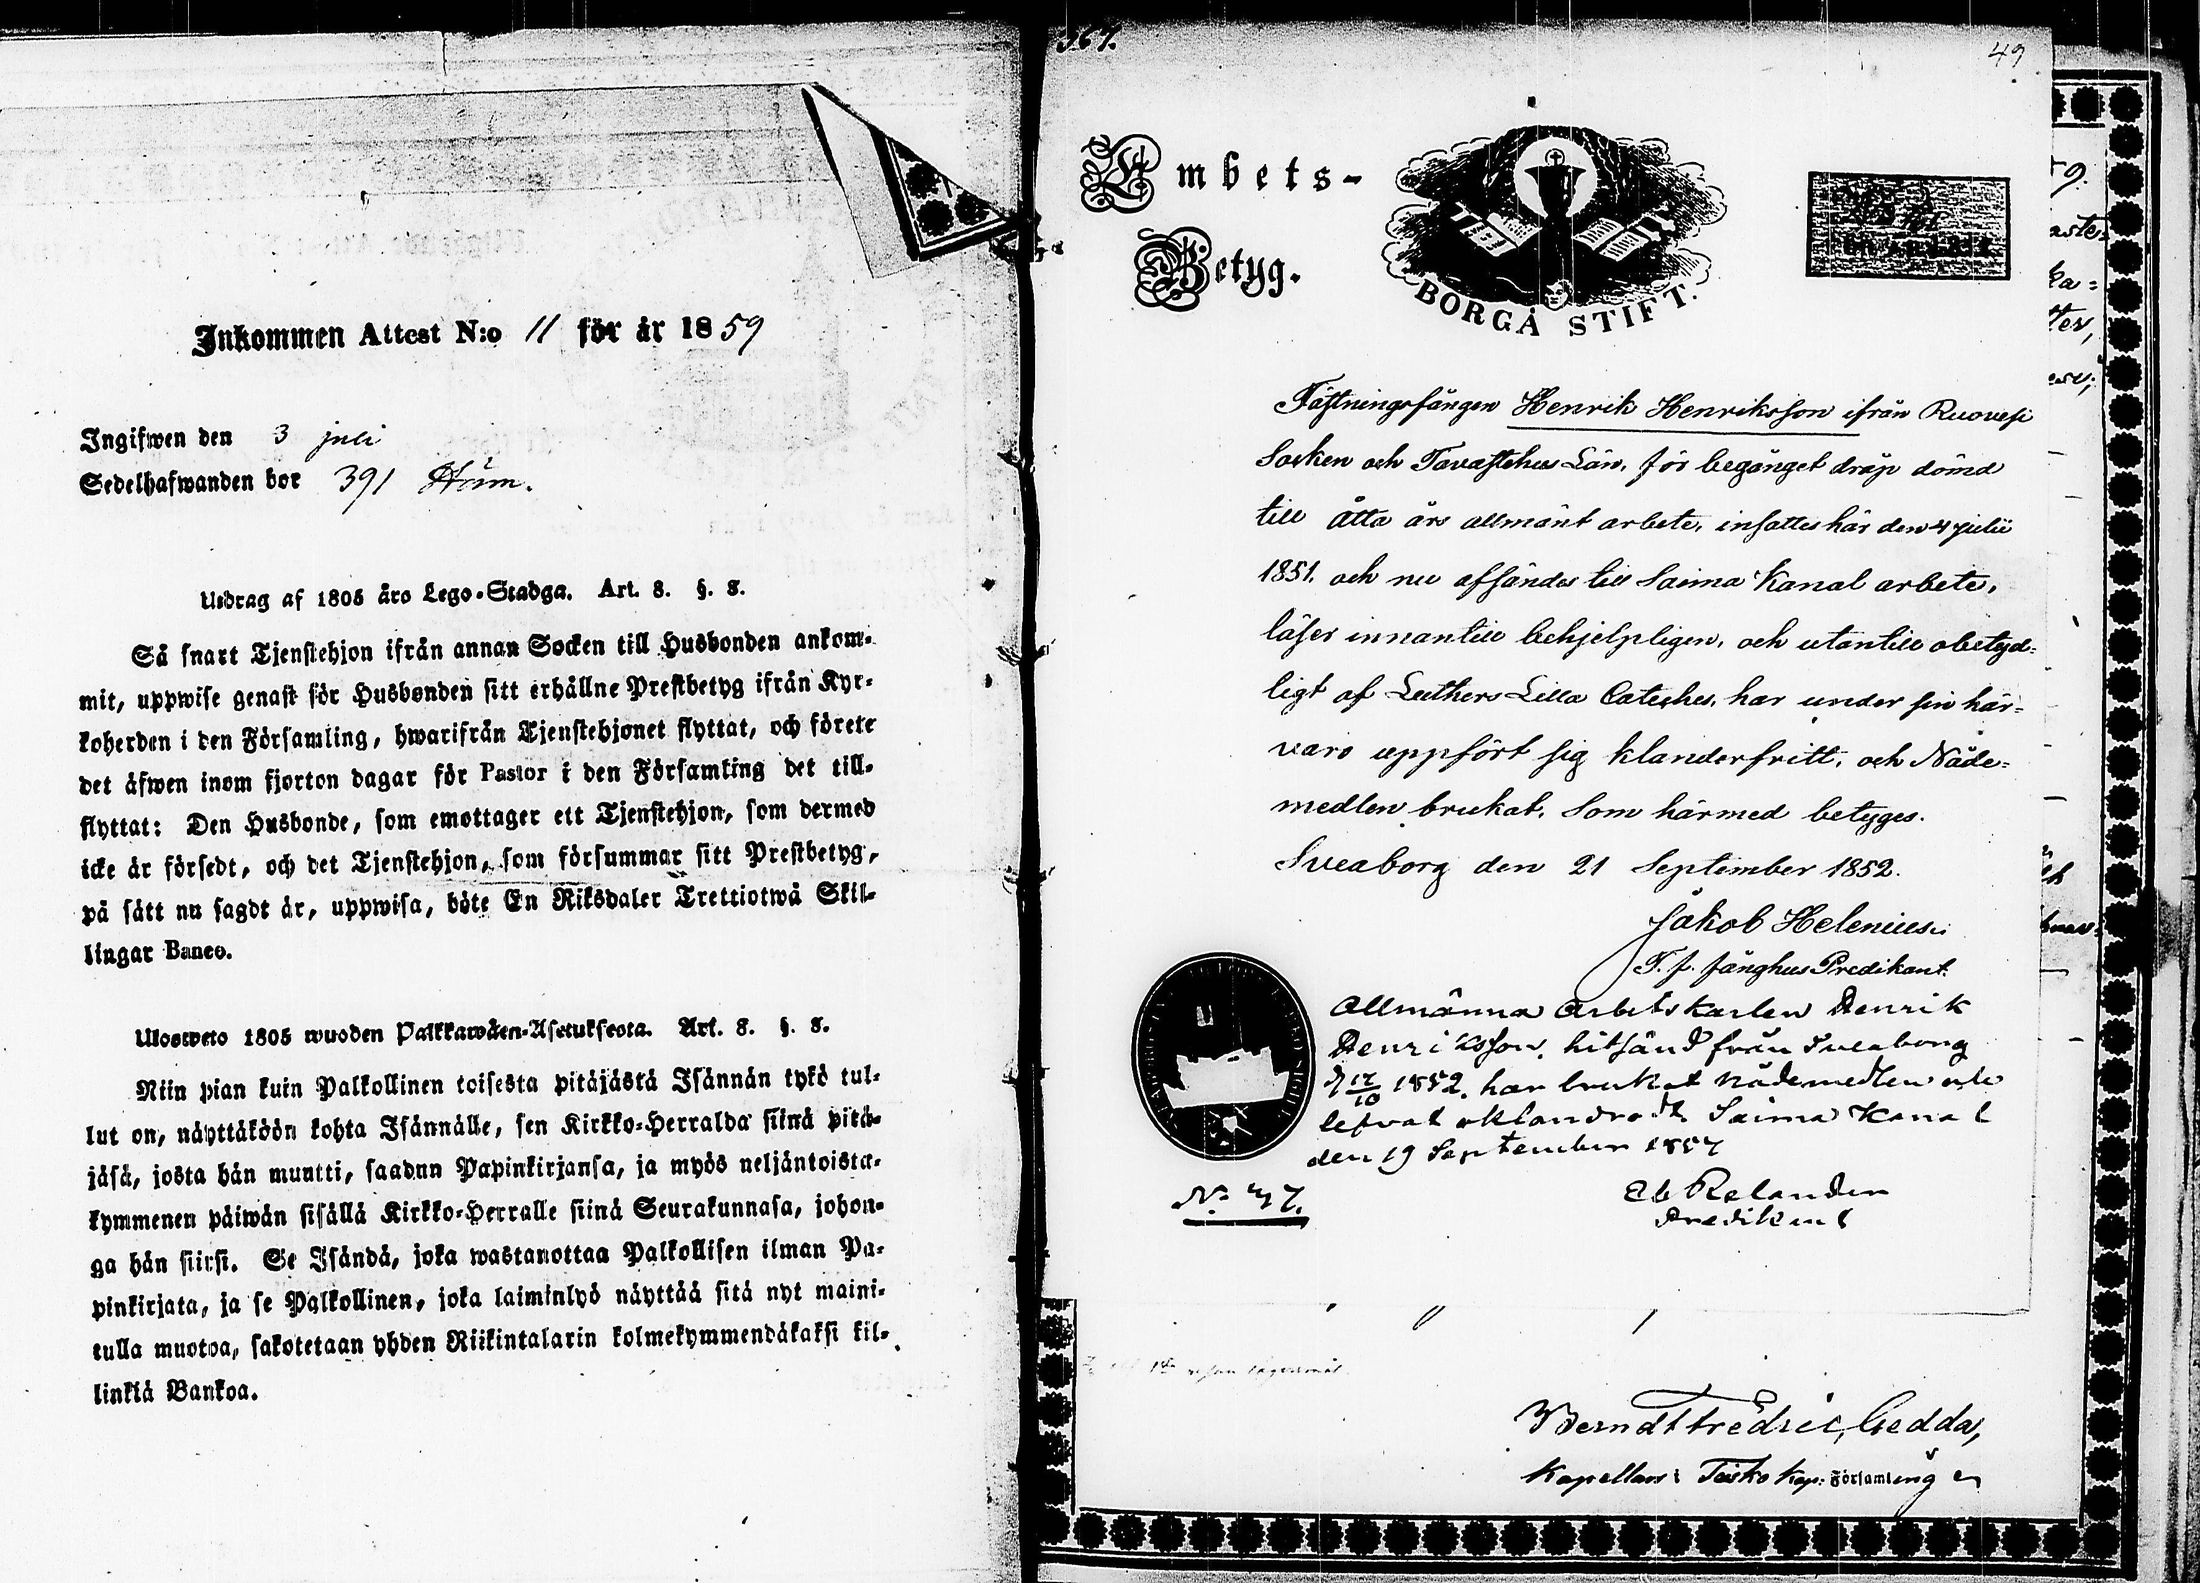 Inkommen Attest N:o 11 för år 1859
Ingifwen den 3 juli
Sedelhafwanden bor 391
Utdrag af 1805 års Lego-Stadga. Art. 8. §. 8.
Så snart Tjenstehjon ifrån annan Socken till Husbonden ankom-
mit, uppwise genast för Husbonden sitt erhållne Prestbetyg ifrån Kyr-
koherden i den Församling, hwarifrån Tjenstehjonet flyttat, och förete
det äfwen inom fjorton dagar för Pastor i den Församling det till-
flyttat: Den Husbonde, som emottager ett Tjenstehjon, som dermed
icke är försedt, och det Tjenstehjon, som försummar sitt Prestbetyg,
på sätt nu sagdt är, uppwisa, böte En Riksdaler Trettiotwå Skil-
lingar Banco.
Ulosweto 1805 wuoden Palkkawäen-Asetuksesta. Art. 8. §. 8.
Niin pian kuin Palkollinen toisesta pitäjästä Isännän tykö tul-
lut on, näyttäköön kohta Isännälle, sen Kirkko-Herralda siinä pitä-
jäsä, josta hän muutti, saadun Papinkirjansa, ja myös neljäntoista-
kymmenen päiwän sisällä Kirkko-Herralle siinä Seurakunnasa, johon-
ga hän siirsi. Se Isändä, joka wastanottaa Palkollisen ilman Pa-
pinkirjata, ja se Palkollinen, joka laiminlyö näyttää sitä nyt maini-
tulla muotoa, sakotetaan yhden Riikintalarin kolmekymmendäkaksi kil-
linkiä Bankoa.
367.
49
Embets-
Betyg.
BORGÅ STIFT.
Fästningsfången Henrik Henriksson ifrån Ruovesi
Socken och Tavastehus Län, för begånget dråp dömd
till åtta års allmänt arbete, insattes här den 4 julii
1851. och nu afsändes till Saima Kanal arbete,
läser innantill behjelpligen, och utantill obetyd-
ligt af Luthers Lilla Cateches, har under sin här-
varo uppfört sig klanderfritt, och Nåde-
medlen brukat, Som härmed betyges.
Sveaborg den 21 September 1852.
Jakob Helenius
T. f. fånghus Predikant.
Allmänna Arbetskarlen Henrik
Henriksson, hitsänd från Sveaborg
d 12/10 1852, har brukat nådemedlen och
lefvat oklandradt. Saima Kanal
den 19 September 1857
Relander
Predikant
No 47.
Berndt Fredric Gedda,
Kapellan i Teisko Kap: Församling